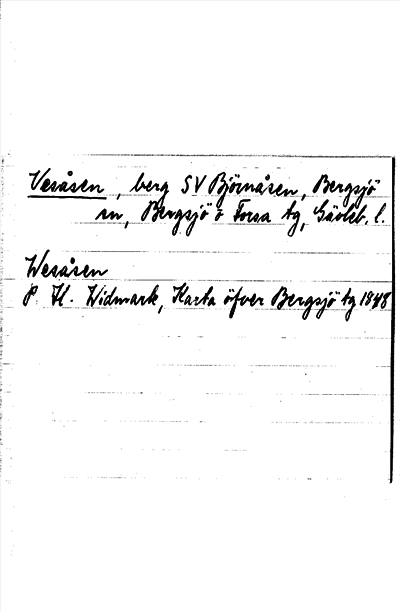 Vesåsen, berg SV Björnåsen, Bergsjö
sn, Bergsjö o Forsa tg, Gävleb. l.
Wesåsen
P. H. Widmark, Karta öfver Bergsjö tg 1848